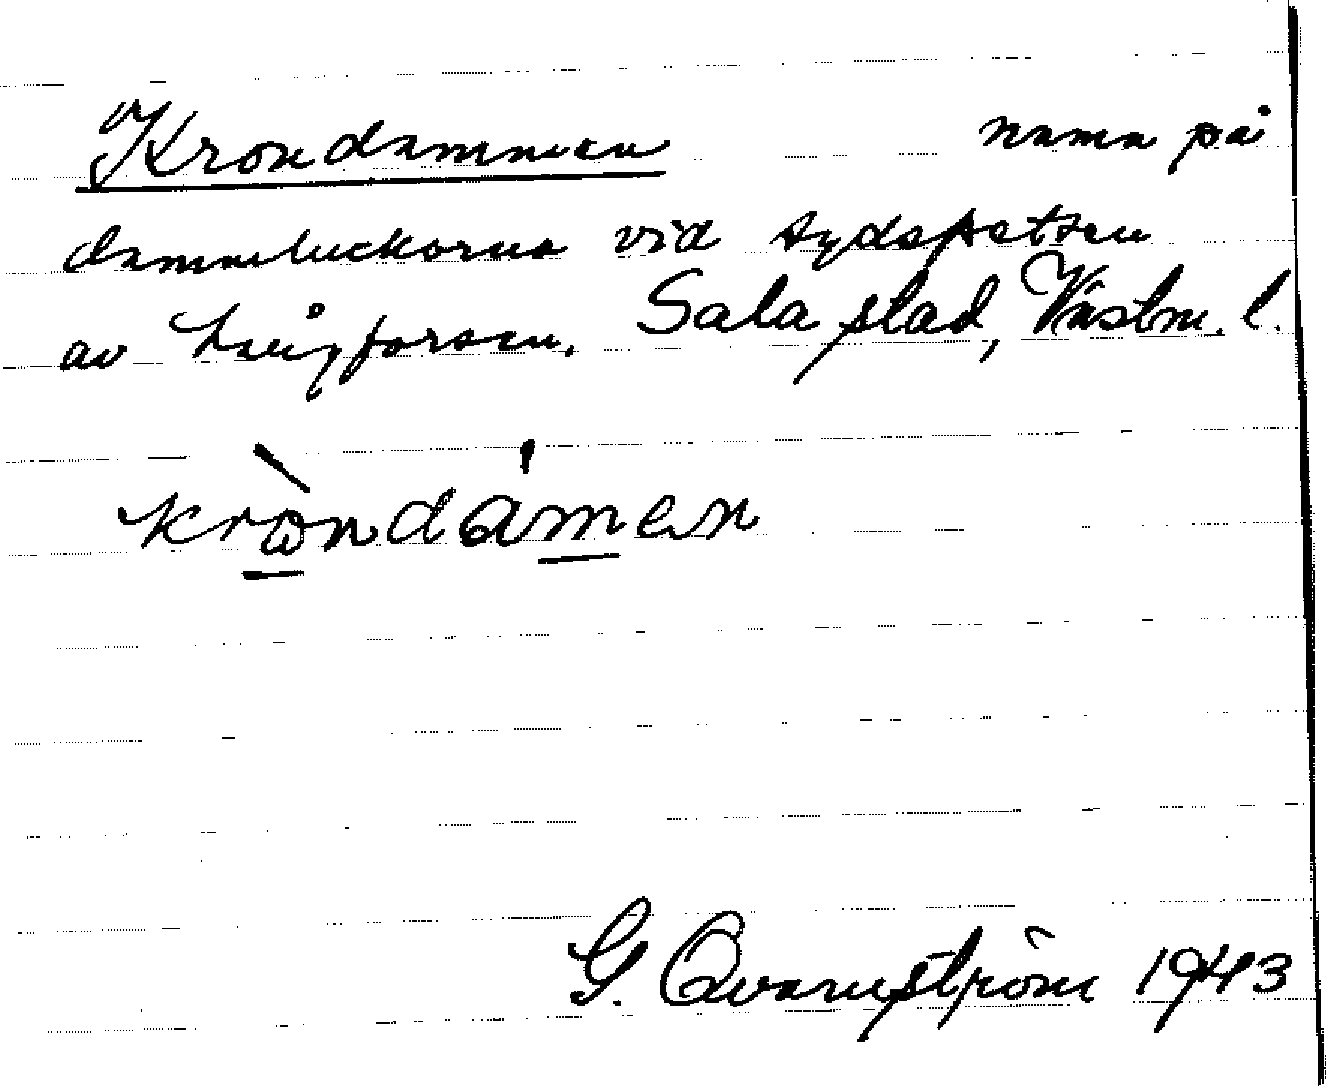 Krondammen namn på
dammluckorna vid sydspetsen
av Långforsen. Sala stad, Västm. l.
kròndámen
G. Qvarnström 1943